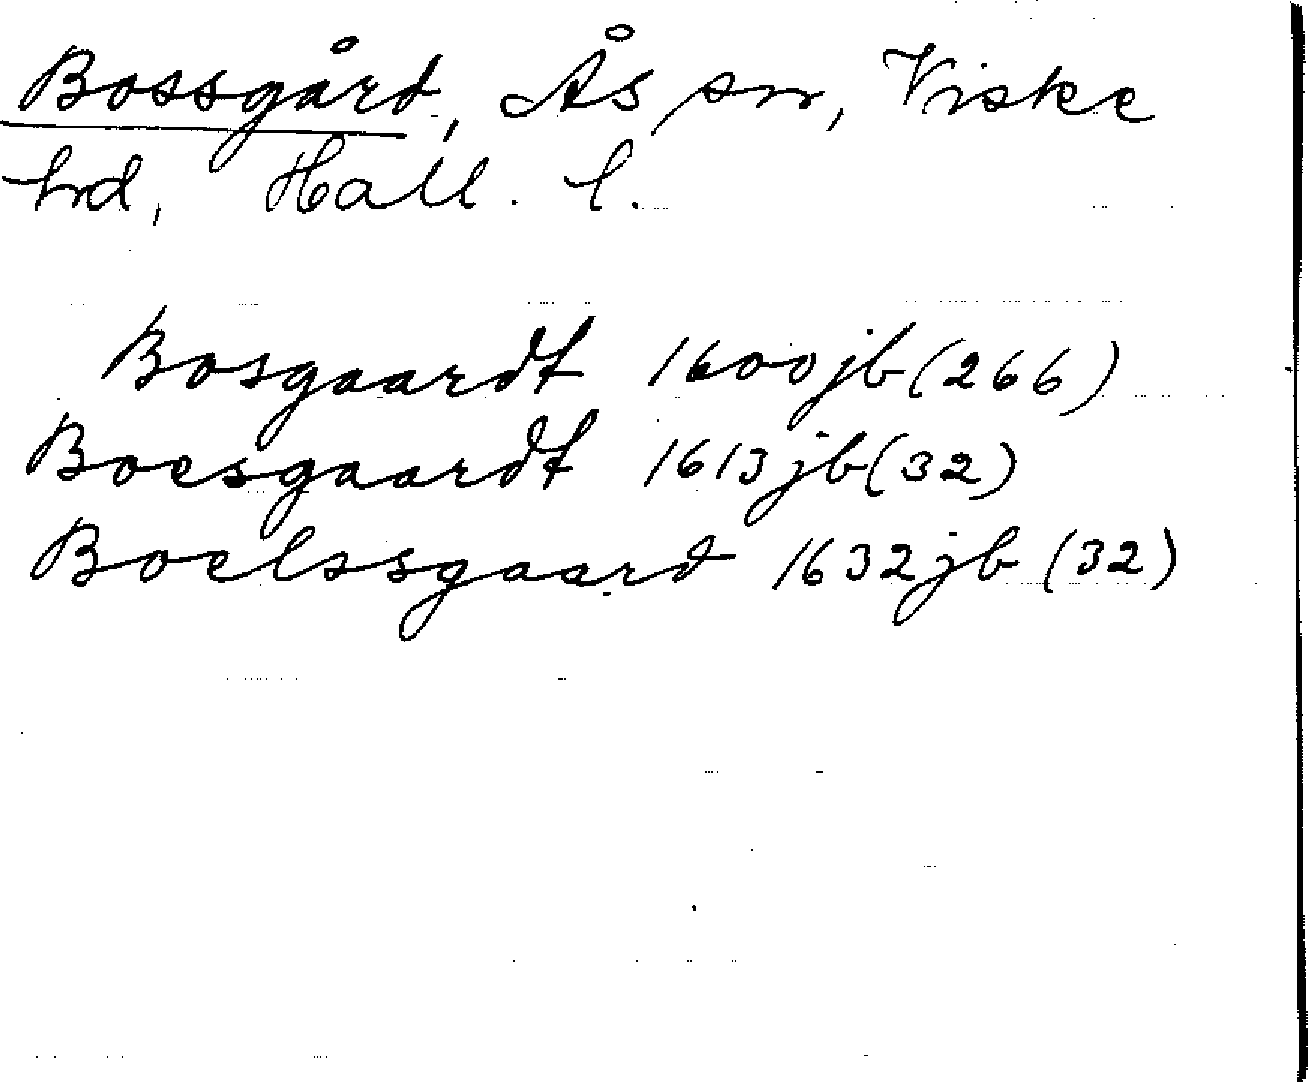 Bossgård, Ås sn, Viske
hd, Hall. l.
Bosgaardt 1600jb(266)
Boesgaardt 1613jb(32)
Boelssgaard 1632jb (32)